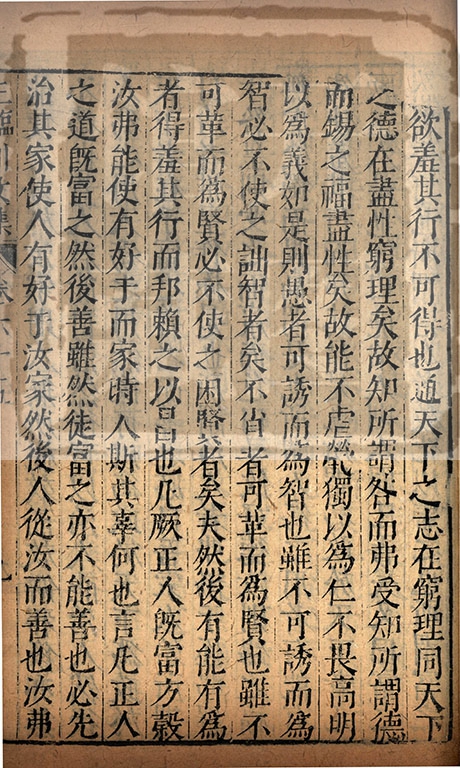 欲羞其行不可得也通天下之志在窮理同天下
之德在盡性窮理矣故知所謂咎而弗受知所謂德
而錫之福盡性矣故能不虐煢獨以為仁不畏高明
以為義如是則愚者可誘而為智也雖不可誘而為
智必不使之詘智者矣不肖者可革而為賢也雖不
可革而為賢必不使之困賢者矣夫然後有能有為
者得羞其行而邦賴之以昌也凡厥正人既富方穀
汝弗能使有好于而家時人斯其辜何也言凡正人
之道既富之然後善雖然徒富之亦不能善也必先
治其家使人有好于汝家然後人從汝而善也汝弗
王臨川文集 卷六十五 九